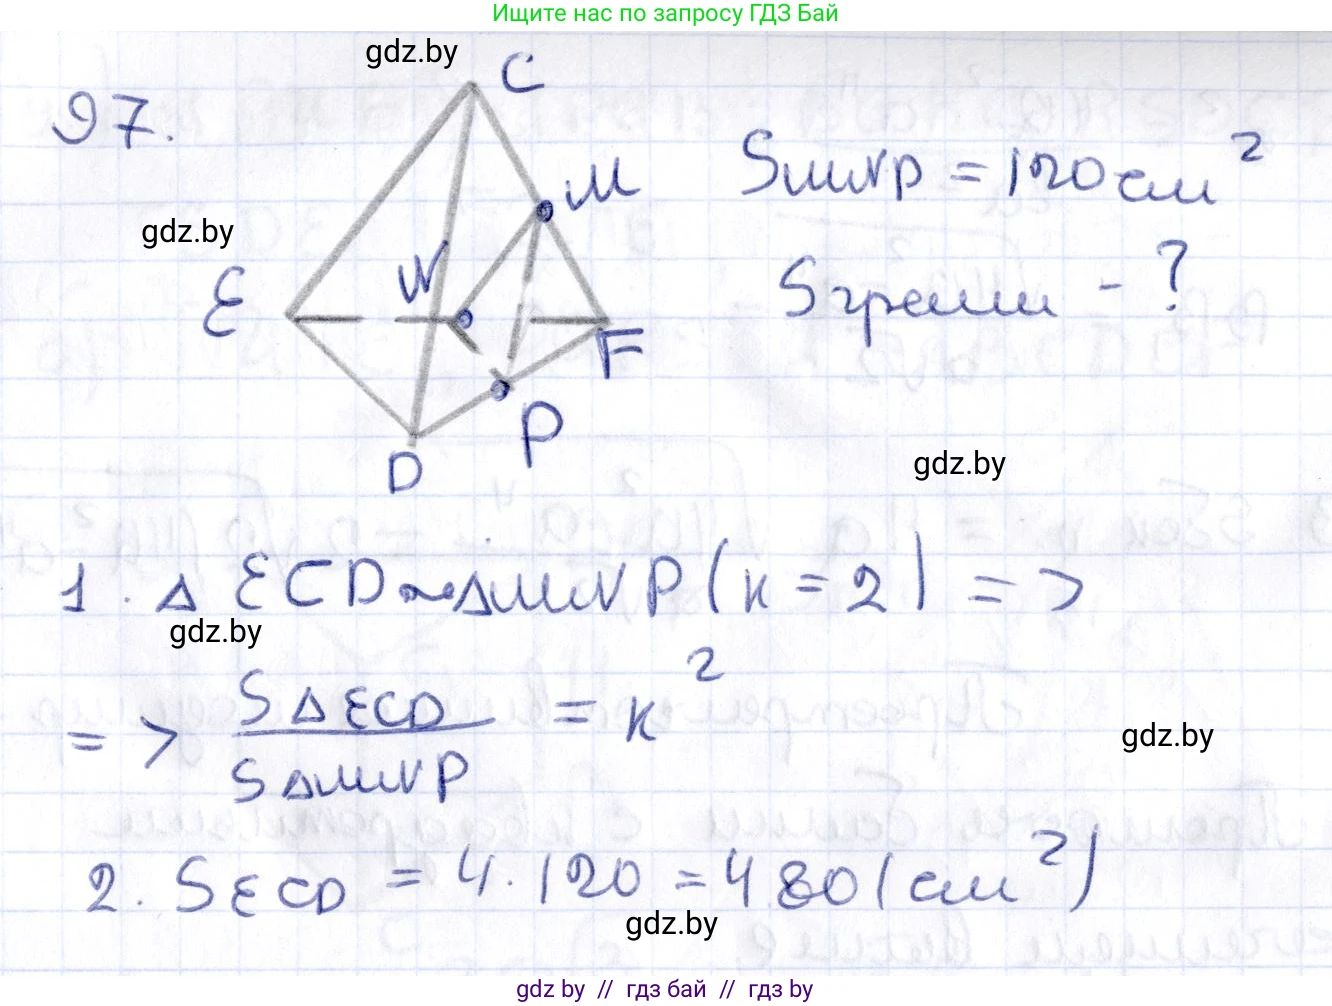 Ищите нас по запросу ГДЗ Бай
gdz.by
97.
C
M
N
E
F
P
D
Sмnp = 120 см²
gdz.by
Sграни - ?
gdz.by
1. △ ECD ~ △MNP (к = 2) =>
gdz.by
=> S△ECD / S△MNP = к²
gdz.by
2. SECD = 4 · 120 = 480 (см²)
gdz.by
gdz by // гдз бай // gdz by